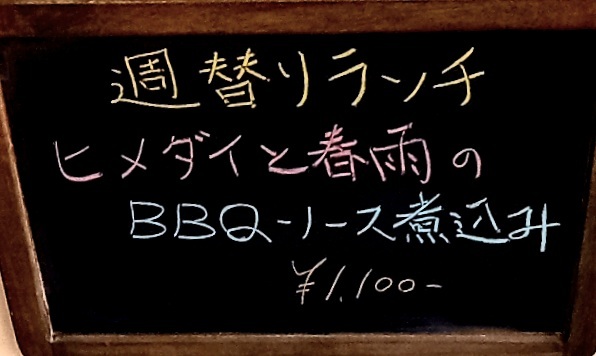 週替りランチ
ヒメダイと春雨の
BBQソース煮込み
¥1,100-